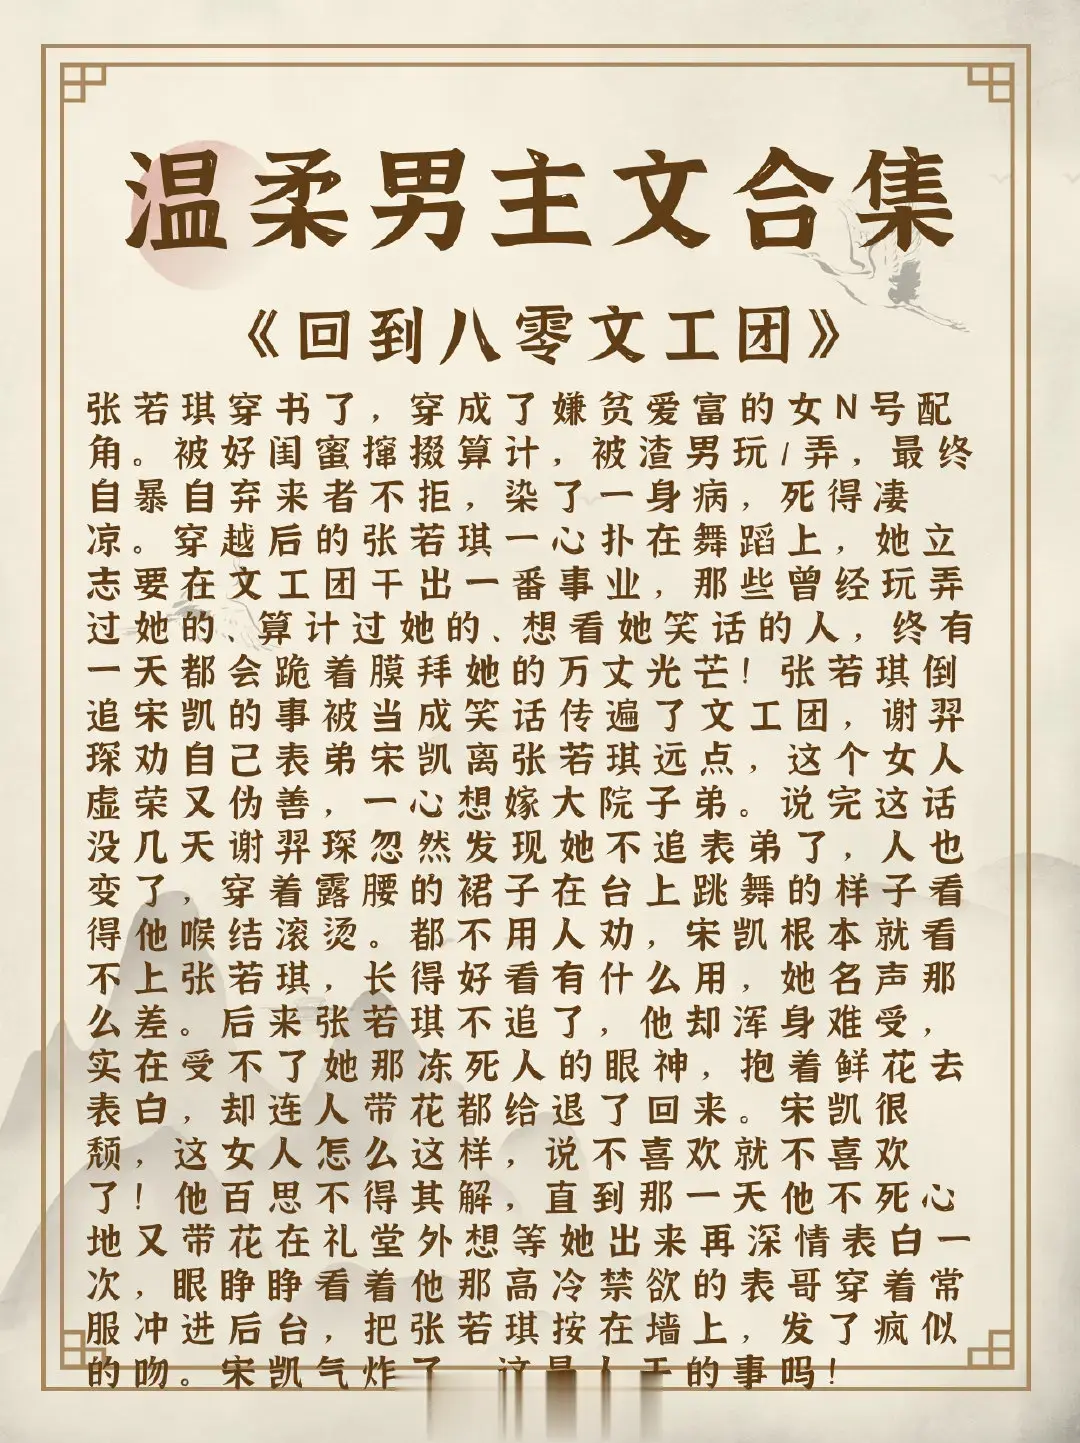 温柔男主文合集
《回到八零文工团》
张若琪穿书了，穿成了嫌贫爱富的女N号配
角。被好闺蜜撺掇算计，被渣男玩/弄，最终
自暴自弃来者不拒，染了一身病，死得凄
凉。穿越后的张若琪一心扑在舞蹈上，她立
志要在文工团干出一番事业，那些曾经玩弄
过她的、算计过她的、想看她笑话的人，终有
一天都会跪着膜拜她的万丈光芒！张若琪倒
追宋凯的事被当成笑话传遍了文工团，谢羿
琛劝自己表弟宋凯离张若琪远点，这个女人
虚荣又伪善，一心想嫁大院子弟。说完这话
没几天谢羿琛忽然发现她不追表弟了，人也
变了，穿着露腰的裙子在台上跳舞的样子看
得他喉结滚烫。都不用人劝，宋凯根本就看
不上张若琪，长得好看有什么用，她名声那
么差。后来张若琪不追了，他却浑身难受，
实在受不了她那冻死人的眼神，抱着鲜花去
表白，却连人带花都给退了回来。宋凯很
颓，这女人怎么这样，说不喜欢就不喜欢
了！他百思不得其解，直到那一天他不死心
地又带花在礼堂外想等她出来再深情表白一
次，眼睁睁看着他那高冷禁欲的表哥穿着常
服冲进后台，把张若琪按在墙上，发了疯似
的吻。宋凯气炸了，这是人干的事吗！